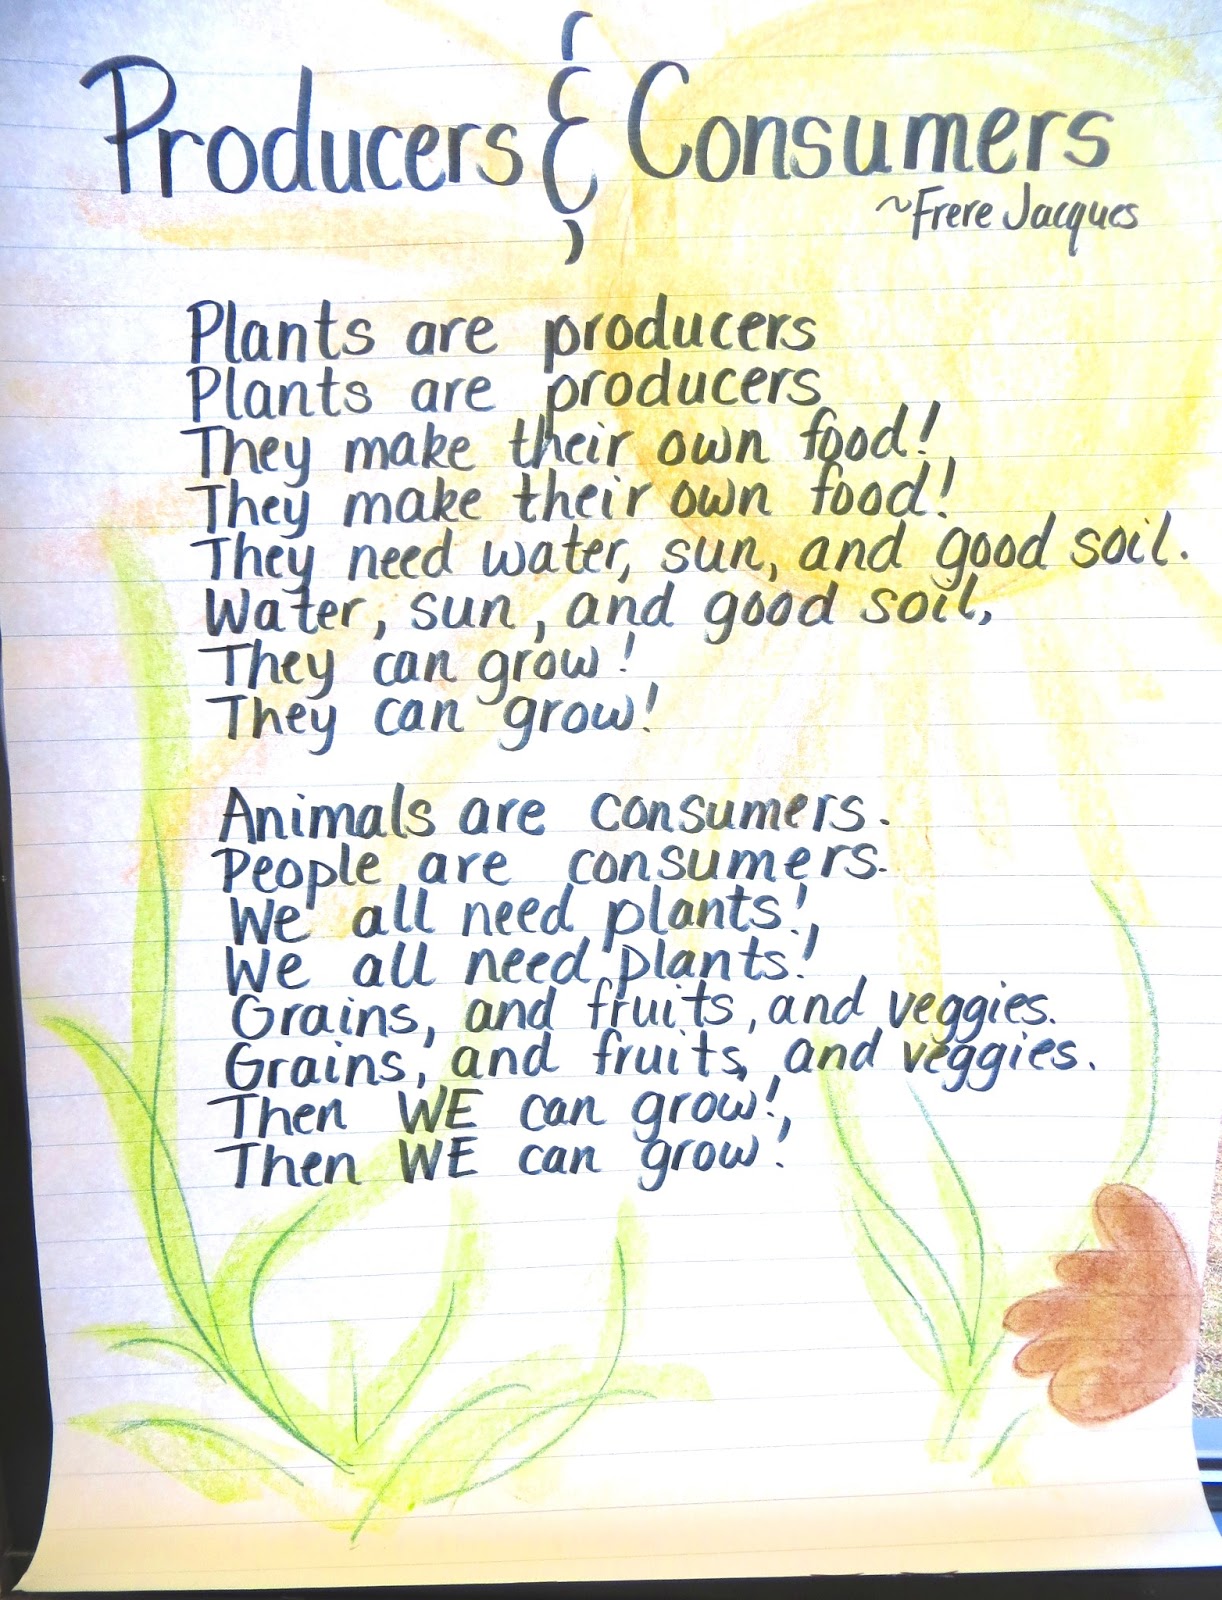 Producers & Consumers
~Frere Jacques
Plants are producers
Plants are producers
They make their own food!
They make their own food!
They need water, sun, and good soil.
Water, sun, and good soil,
They can grow!
They can grow!
Animals are consumers.
People are consumers.
We all need plants!,
We all need plants!
Grains, and fruits, and veggies.
Grains, and fruits, and veggies.
Then WE can grow!,
Then WE can grow!